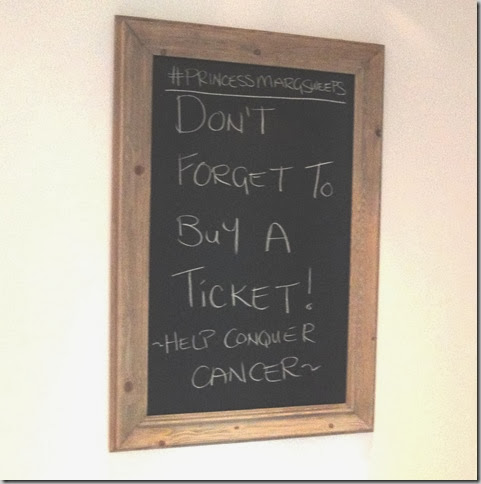 #PRINCESSMARGSWEEPS
DON'T
FORGET TO
BUY A
TICKET!
~HELP CONQUER
CANCER~